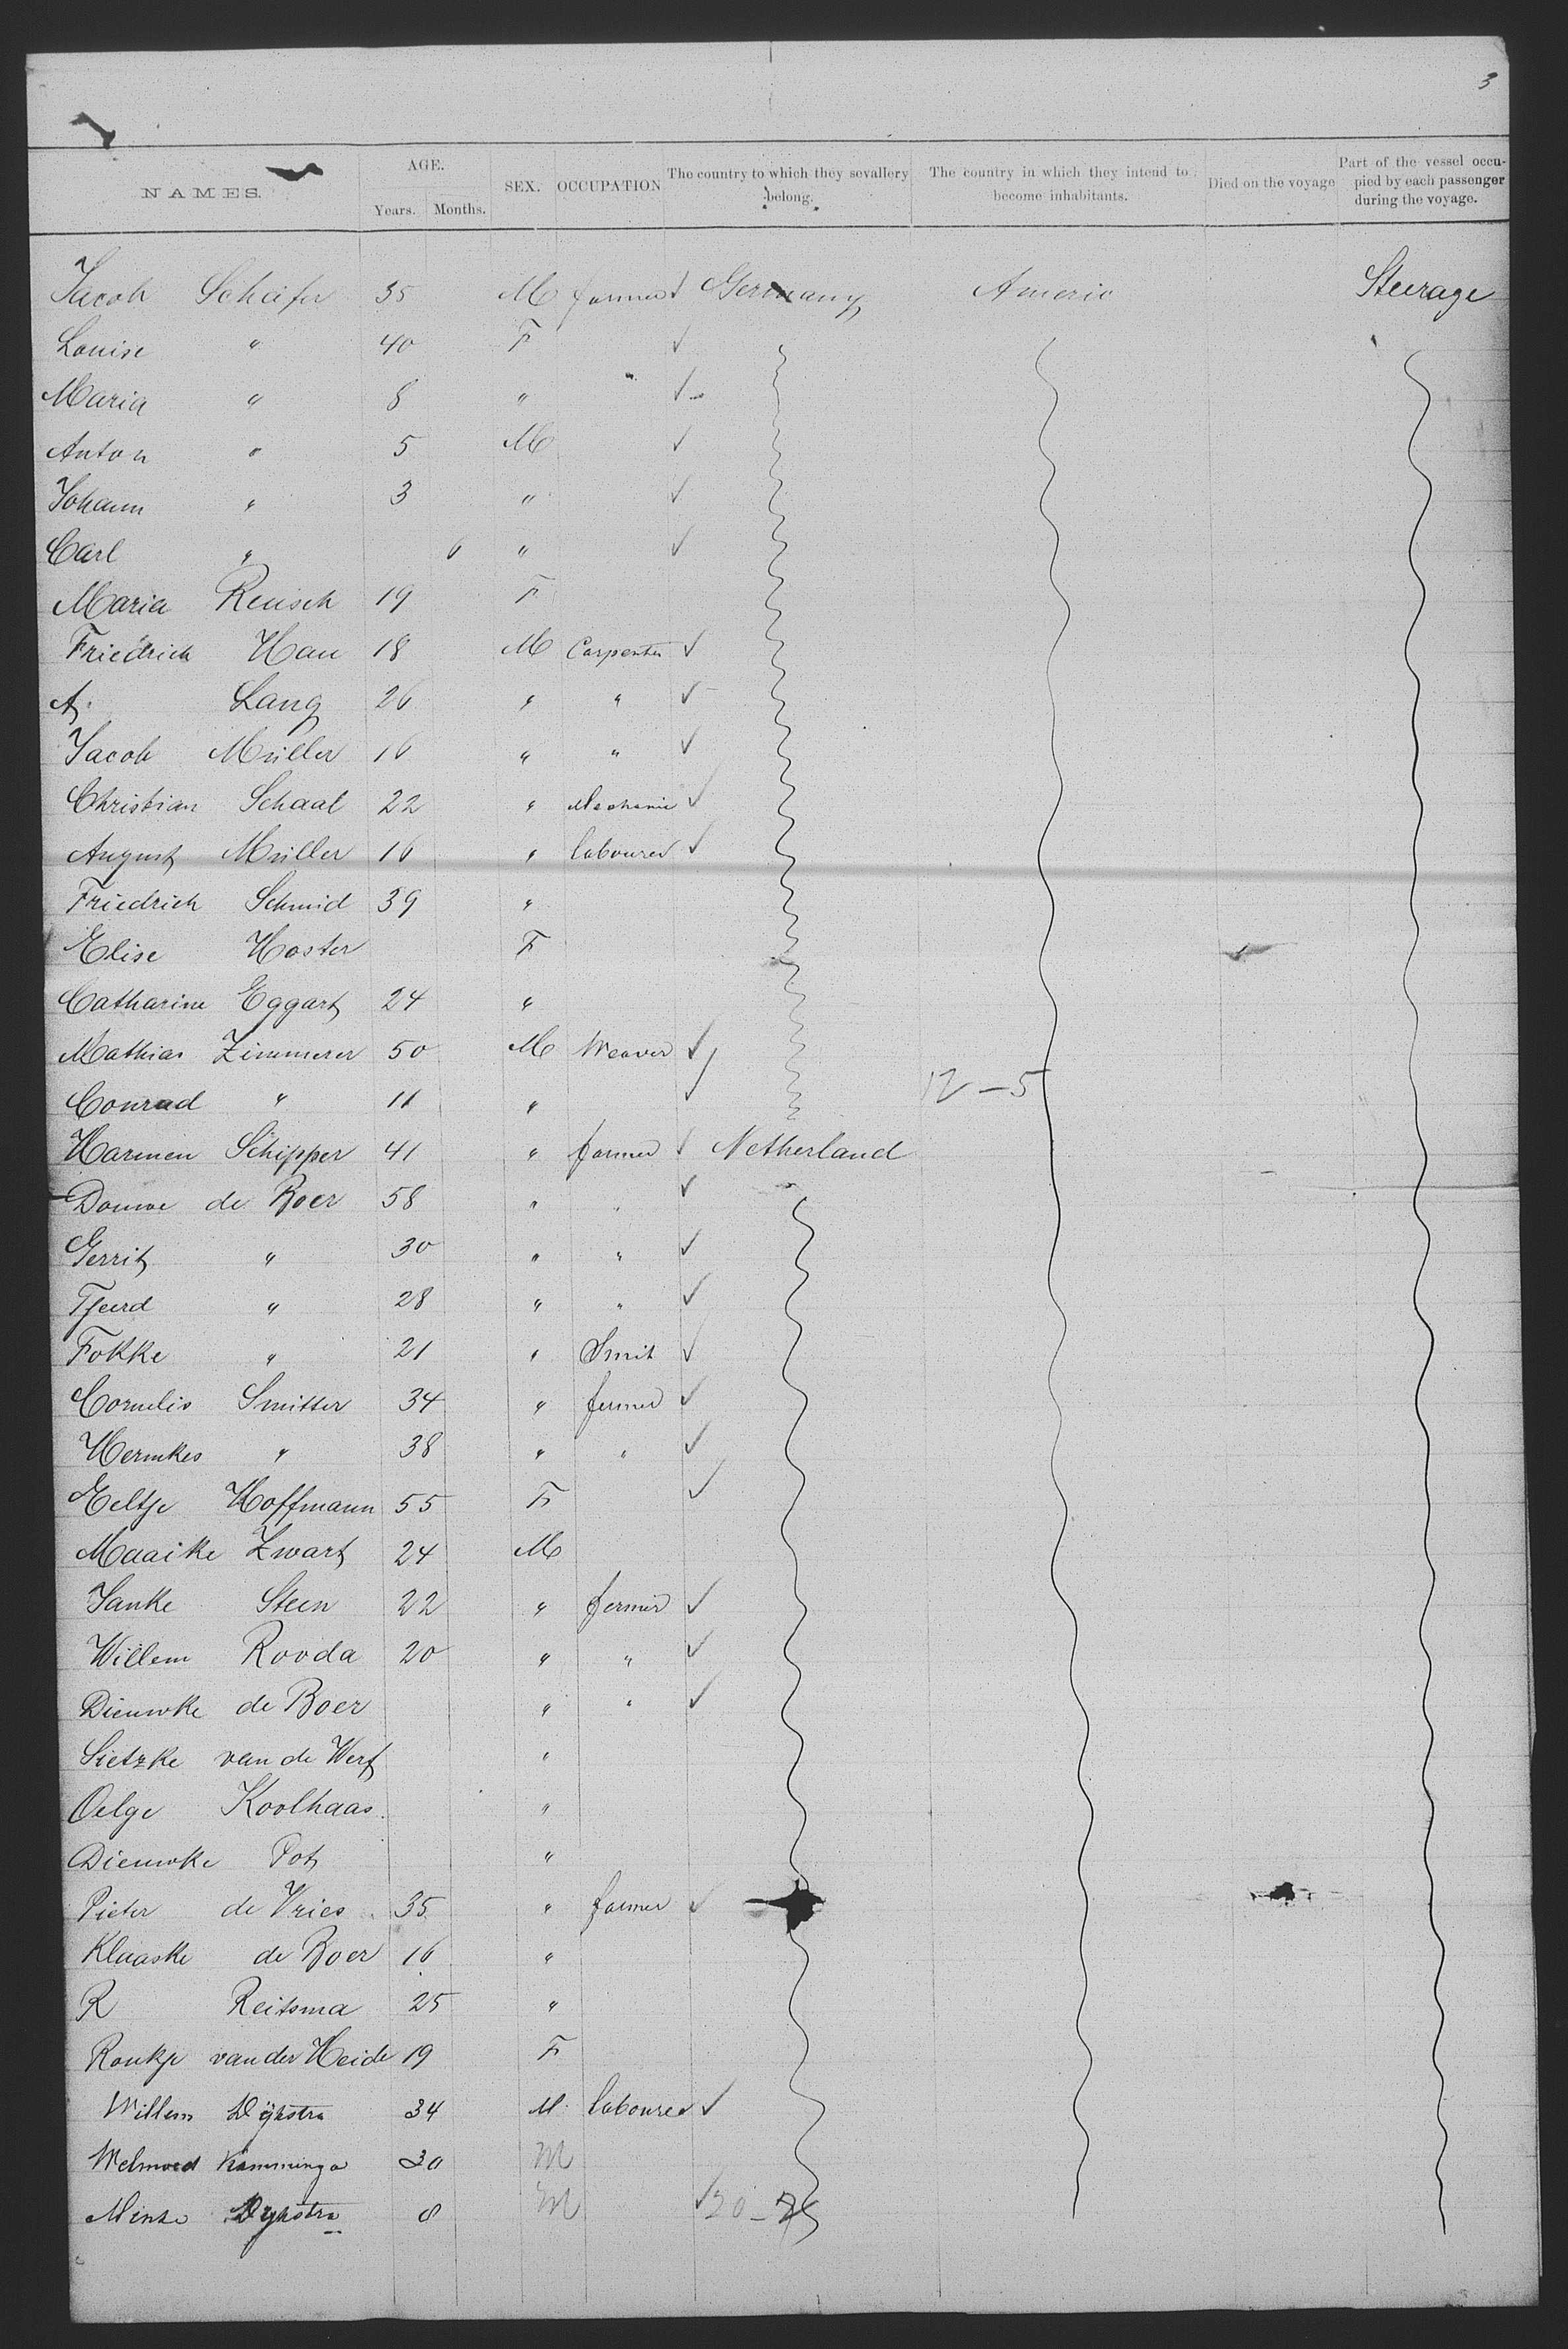 3
NAMES. AGE. Years. Months. SEX. OCCUPATION The country to which they sevallery belong. The country in which they intend to become inhabitants. Died on the voyage Part of the vessel occupied by each passenger during the voyage.
Jacob Schäfer 35 M farmer ✓ Germany Americ Steerage
Louise " 40 F ✓
Maria " 8 " ✓
Anton " 5 M ✓
Johann " 3 " ✓
Carl " 6 " ✓
Maria Reusch 19 F
Friedrich Hau 18 M Carpenter ✓
A. Lang 26 " " ✓
Jacob Müller 16 " " ✓
Christian Schaal 22 " Mechanic ✓
August Müller 16 " labourer ✓
Friedrich Schmid 39 "
Elise Hoster F
Catharine Eggart 24 "
Mathias Zimmerer 50 M Weaver ✓
Conrad " 11 " ✓ 12 – 5
Harmen Schipper 41 " farmer ✓ Netherland
Douwe de Boer 58 " " ✓
Gerrit " 30 " " ✓
Tjeerd " 28 " " ✓
Fokke " 21 " Smit ✓
Cornelis Smitter 34 " fermer ✓
Hermkes " 38 " " ✓
Eeltje Hoffmann 55 F ✓
Maaike Zwart 24 M
Janke Steen 22 " fermer ✓
Willem Rooda 20 " " ✓
Dieuwke de Boer " " ✓
Sietzke van de Werf "
Oelge Koolhaas. "
Dieuwke Pot "
Pieter de Vries 35 " farmer ✓
Klaaske de Boer 16 "
R Reitsma 25 "
Roukje van der Heide 19 F
Willem Dijkstra 34 M. labourer ✓
Welmoed Kamminga 30 M
Dykstra 8 M ✓ 20 –